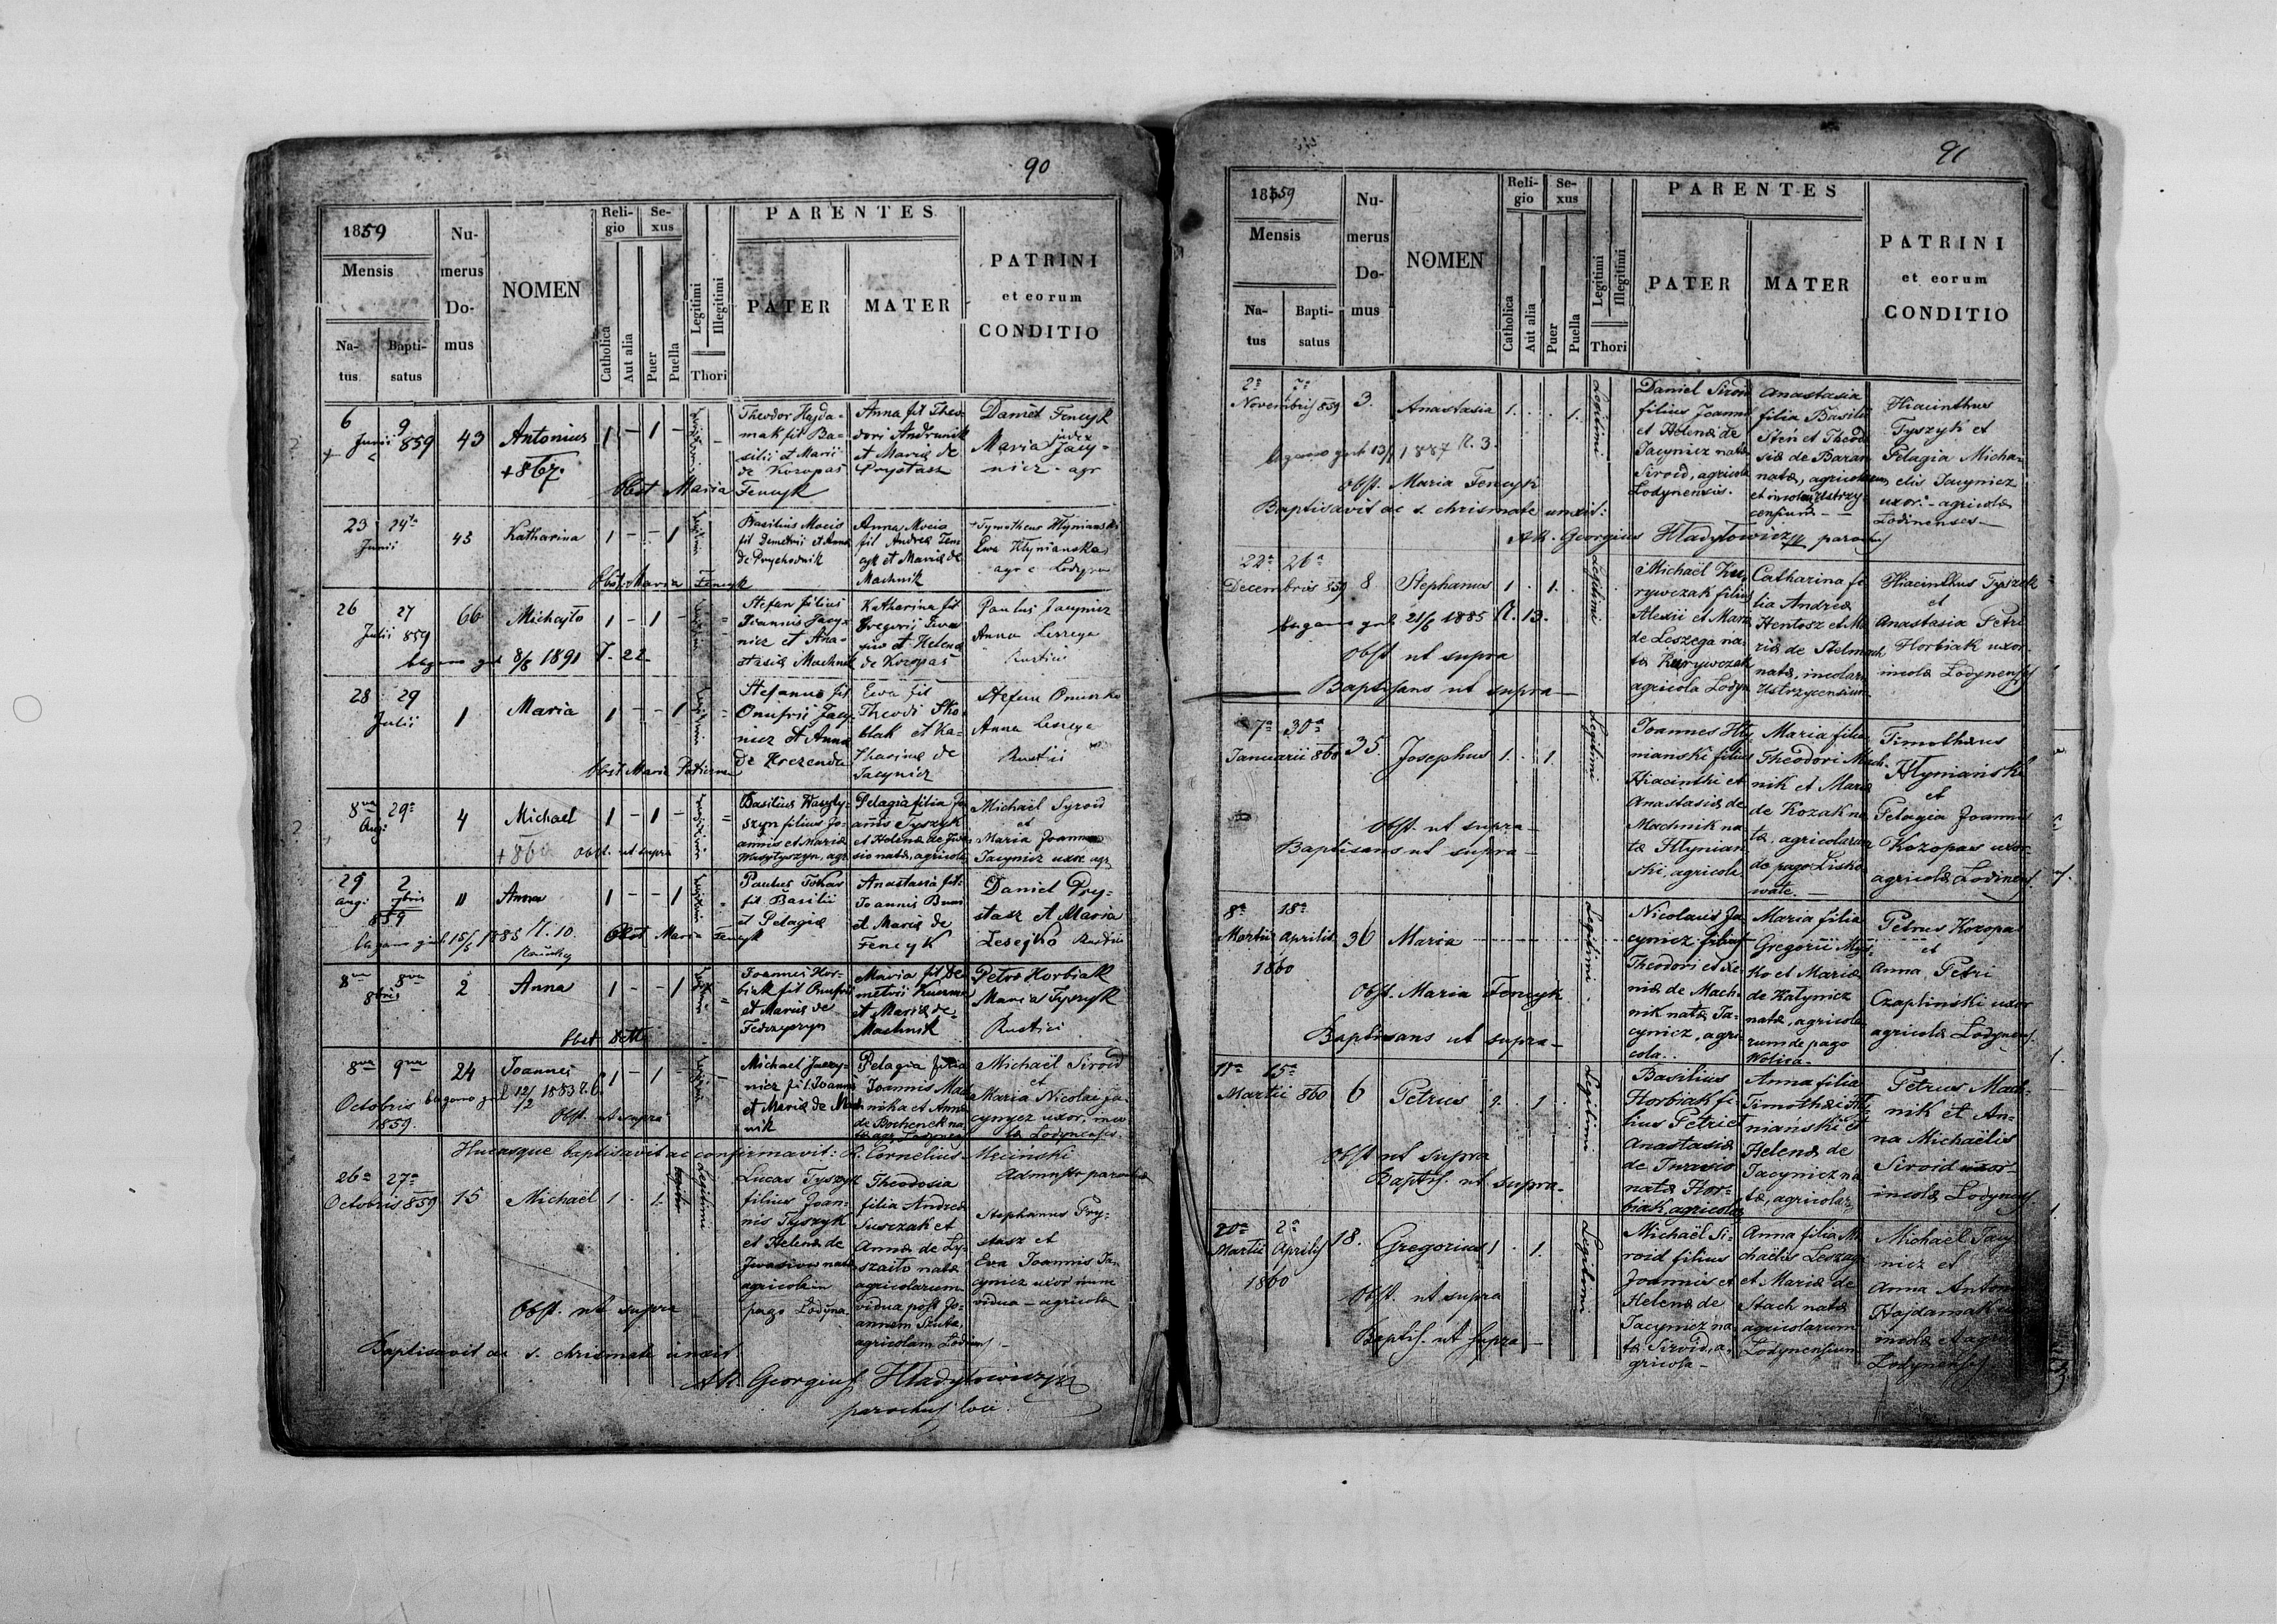 90
1859
Mensis
Natus
Baptisatus
Numerus Domus
NOMEN
Religio
Catholica
Aut alia
Sexus
Puer
Puella
Legitimi
Illegitimi
Thori
PARENTES
PATER
MATER
PATRINI
et eorum
CONDITIO
6 9
Junii 859
43
Antonius
+ 867.
1 – 1 –
Theodor Hajda-
mak fil Ba-
silii et Marii
de Koropas
Anna fil Theo
dori Andrunik
et Maria de
Prystasz
Daniel Fencyk
judex
Maria Jacy-
nicz - agr
Obst Maria Fencyk
23 24ta
Junii
43
Katharina
1 – – 1
Basilius Mocio
fil Demetrii et Anna
de Prychodnik
Anna Mocio
fil Andrea Fen
cyk et Maria de
Machnik
Tymotheus Hlynianski
Ewa Hlynianska
agr e Lodyna
Obst. Maria Fencyk
26 27
Julii 859
66
Michajlo
1 – 1 –
Stefan filius
Joannis Jacy-
nicz et Ana-
stasiæ Machnik
Katharina fil
Gregorii Iwa
et Helena
de Koropas
Paulus Jacynicz
Anna
Rustici
8/8 1891 T. 22
28 29
Julii
1
Maria
1 – – 1
Stefanus fil
Onufrii Jacy-
nicz et Anna
de
Ewa fil
Theodi Sko
blak et Ka-
tharina de
Jacynicz
Stefan
Anna
Rustici
Obst. Maria
8va 29a
Aug:
4
Michael
+ 860
1 – 1 –
Basilius Waszly-
szyn filius Jo-
annis et Mariæ
Waszlyszyn, agr
Pelagia filia Jo
annis Tyszyk
et Helenæ de Jwa
sio natæ, agricolæ
Michaël Syroid
et
Maria Joannis
Jacynicz uxor agr
Obst. ut supra
29 2
Aug: 7bris
859
11
Anna
1 – – 1
Paulus Tokar
fil Basilii
et Pelagiæ
Anastasia fil:
Joannis
et Mariæ de
Fencyk
Daniel Pry-
stasz et Maria
Lesejko Rustici
15/5 1885 N. 10.
Obst Maria Fencyk
8va 8va
8bris
2
Anna
1 – – 1
Joannes Hor-
biak fil Onufrii
et Mariæ de
Maria fil De
metrii
et Mariæ de
Machnik
Petro Horbiak
Maria Tyszyk
Rustici
Obst detto
8va 9va
Octobris
1859.
24
Joannes
1 – 1 –
12/2 1883 N. 6
Michael Jacy-
nicz fil. Joannis
et Mariæ de Mach
nik
Pelagia filia
Joannis
et Annæ
de Bochenek na
tæ agr Lodynen
Michaël Siroid
et
Maria Nicolai Ja
cynycz uxor, inco
læ Lodynensis.
Obst. ut supra
Hucusque baptisavit ac confirmavit: R. Cornelius Mecinski
Admnstr parochiæ
26a 27a
Octobris 859
15
Michaël
1 . 1.
Legitimi
Lucas Tyszyk
filius Joan-
nis Tyszyk
et Helenæ de
Jwasiow natæ
agricola in
pago Lodyna
Theodosia
filia Andreæ
et
Annæ de Ly-
szaito natæ
agricolarum
vidua post Jo-
annem
agricolam Lodinens
Stephanus Pry-
stasz et
Eva Joannis Ja
cynicz uxor num
vidua – agricola
Obst. ut supra
Baptisavit ac s. chrismate unxit
Georgius Hladylowicz
parochus loci.
91
1859
Mensis
Natus
Baptisatus
Numerus Domus
NOMEN
Religio
Catholica
Aut alia
Sexus
Puer
Puella
Legitimi
Illegitimi
Thori
PARENTES
PATER
MATER
PATRINI
et eorum
CONDITIO
2a 7a
Novembris 859
3.
Anastasia
1. . . 1.
Legitimi
Daniel Siroid
filius Joannis
et Helenæ de
Jacynicz natæ
Siroid, agricola
Lodynensis.
Anastasia
filia Basilii
Sten et Theodo
siæ de Baran
natæ, agricolarum
et incolarum Ustrzy-
censium –
Hiacinthus
Tyszyk et
Pelagia Micha-
elis Jacynicz
uxor – agricolæ
Lodinenses –
1887 N. 3.
Obst. Maria Fencyk
Baptisavit ac s. chrismate unxit:
Georgius Hladylowicz parochus
22a 26a
Decembris 859
8
Stephanus
1 . 1.
Legitimi
Michaël Ku-
rywczak filius
Alexii et Mariæ
de Leszega na-
tæ Kurywczak
agricola Lodyn
Catharina fi
lia Andreæ
Hentosz et Ma
riæ de Stelmach
natæ, incolarum
Ustrzycensium
Hiacinthus Tyszek
et
Anastasia Petri
Horbiak uxor
incolæ Lodynenses
21/6 1885 N. 13.
Obst ut supra
Baptisans ut supra –
7a 30a
Januarii 860
35
Josephus
1 . 1.
Legitimi
Joannes Hly-
nianski filius
Hiacinthi et
Anastasiæ de
Machnik na
tæ Hlynian-
ski, agricola
Maria filia
Theodori Mach-
nik et Mariæ
de Kozak na
tæ, agricolarum
de pago Lisko-
wate. –
Timotheus
Hlynianski
et
Pelagia Joannis
Koropas uxor
agricolæ Lodinens
Obst. ut supra –
Baptisans ut supra –
8a 18a
Martii Aprilis
1860
36
Maria
Legitimi
Nicolaus Ja
cynicz filius
Theodori et Xe-
niæ de Mach-
nik natæ Ja-
cynicz, agri-
cola.
Maria filia
Gregorii
ko et Mariæ
de Katynicz
natæ, agricola
rum de pago
Wolica –
Petrus Koropas
et
Anna Petri
Czaplinski uxor
agricolæ Lodynens.
Obst. Maria Fencyk
Baptisans ut supra –
11a 15a
Martii 860
6
Petrus
1. . 1.
Legitimi
Basilius
Horbiak fi-
lius Petri et
Anastasiæ
de Iwasio
natæ Hor-
biak, agricola
Anna filia
Timothæi Hly-
nianski et
Helenæ de
Jacynicz na
tæ, agricolar,
Petrus Mach-
nik et An-
na Michaëlis
Siroid uxor
incolæ Lodynens
Obst ut supra
Baptis. ut supra –
20a 2a
Martii Aprilis
1860
18.
Gregorius
1 . 1.
Legitimi
Michaël Si-
roid filius
Joannis et
Helenæ de
Jacynicz na
tæ Siroid, a-
gricola –
Anna filia Mi
chaëlis Leszega
et Mariæ de
Stach natæ
agricolarum
Lodynensium
Michaël Jacy-
nicz et
Anna Antoni
Hajdamak
incolæ et agri
Lodynenses
Obst. ut supra
Baptis. ut supra –